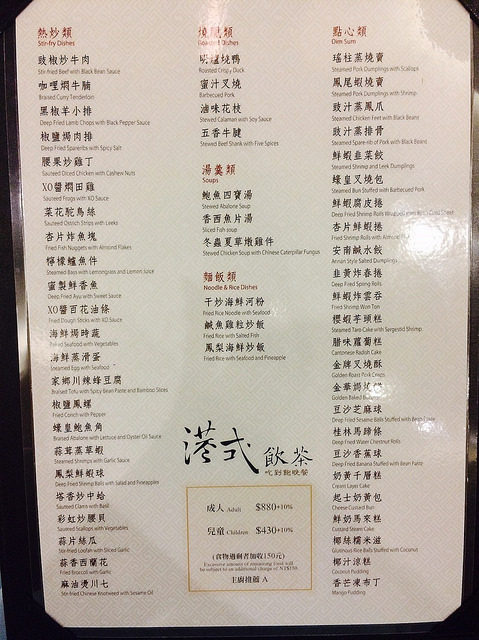 熱炒類
Stir-fry Dishes
豉椒炒牛肉
Stir-fried Beef with Black Bean Sauce
咖哩燜牛腩
Braised Curry Tenderloin
黑椒羊小排
Deep Fried Lamb Chops with Black Pepper Sauce
椒鹽焗肉排
Deep Fried Spareribs with Spicy Salt
腰果炒雞丁
Sauteed Diced Chicken with Cashew Nuts
XO醬燜田雞
Sauteed Frogs with XO Sauce
菜花駝鳥絲
Sauteed Ostrich Strips with Leeks
杏片炸魚塊
Fried Fish Nuggets with Almond Flakes
檸檬鱸魚件
Steamed Bass with Lemongrass and Lemon Juice
蜜製鮮香魚
Deep Fried Ayu with Sweet Sauce
XO醬百花油條
Fried Dough Sticks with XO Sauce
海鮮焗時蔬
Baked Seafood with Vegetables
海鮮蒸滑蛋
Steamed Egg with Seafood
家鄉川辣蜂豆腐
Braised Tofu with Spicy Bean Paste and Bamboo Slices
椒鹽鳳螺
Fried Conch with Pepper
蠔皇鮑魚角
Braised Abalone with Lettuce and Oyster Oil Sauce
蒜茸蒸草蝦
Steamed Shrimps with Garlic Sauce
鳳梨鮮蝦球
Deep Fried Shrimp Balls with Salad and Pineapples
塔香炒中蛤
Sauteed Clams with Basil
彩虹炒腰貝
Sauteed Scallops with Vegetables
蒜片絲瓜
Stir-fried Loofah with Sliced Garlic
蒜香西蘭花
Fried Broccoli with Garlic
麻油燙川七
Stir-fried Chinese Knotweed with Sesame Oil
燒臘類
Roasted Dishes
明爐燒鴨
Roasted Crispy Duck
蜜汁叉燒
Barbecued Pork
滷味花枝
Stewed Calamari with Soy Sauce
五香牛腱
Stewed Beef Shank with Five Spices
湯羹類
Soups
鮑魚四寶湯
Stewed Abalone Soup
香西魚片湯
Sliced Fish soup
冬蟲夏草燉雞件
Stewed Chicken Soup with Chinese Caterpillar Fungus
麵飯類
Noodle & Rice Dishes
干炒海鮮河粉
Fried Rice Noodle with Seafood
鹹魚雞粒炒飯
Fried Rice with Salted Fish
鳳梨海鮮炒飯
Fried Rice with Seafood and Pineapple
港式飲茶
吃到飽晚餐
成人 Adult $880+10%
兒童 Children $430+10%
(食物過剩者加收150元)
Excessive amount of remaining food will
be subject to an additional charge of NT$150.
主廚推薦 A
點心類
Dim Sum
瑤柱蒸燒賣
Steamed Pork Dumplings with Scallops
鳳尾蝦燒賣
Steamed Pork Dumplings with Shrimp
豉汁蒸鳳爪
Steamed Chicken Feet with Black Beans
豉汁蒸排骨
Steamed Spare-rib of Pork with Black Beans
鮮蝦韭菜餃
Steamed Shrimp and Leek Dumplings
蠔皇叉燒包
Steamed Bun Stuffed with Barbecued Pork
鮮蝦腐皮捲
Deep Fried Shrimp Rolls Wrapped
杏片鮮蝦捲
Fried Shrimp Rolls with Almond
安南鹹水餃
Annan Style Salted Dumplings
韭黃炸春捲
Deep Fried Spring Rolls
鮮蝦炸雲吞
Fried Shrimp Won Ton
櫻蝦芋頭糕
Steamed Taro Cake with Sergestid Shrimp
腊味蘿蔔糕
Cantonese Radish Cake
金牌叉燒酥
Golden Roast Pork Crisps
金華焗燒餅
Golden Baked
豆沙芝麻球
Deep Fried Sesame Balls Stuffed with Bean Paste
桂林馬蹄條
Deep Fried Water Chestnut Rolls
豆沙香蕉球
Deep Fried Banana Stuffed with Bean Paste
奶黃千層糕
Cream Layer Cake
起士奶黃包
Cheese Custard Bun
鮮奶馬來糕
Custard Steam Cake
椰絲糯米滋
Glutinous Rice Balls Stuffed with Coconut
椰汁涼糕
Coconut Pudding
香芒凍布丁
Mango Pudding